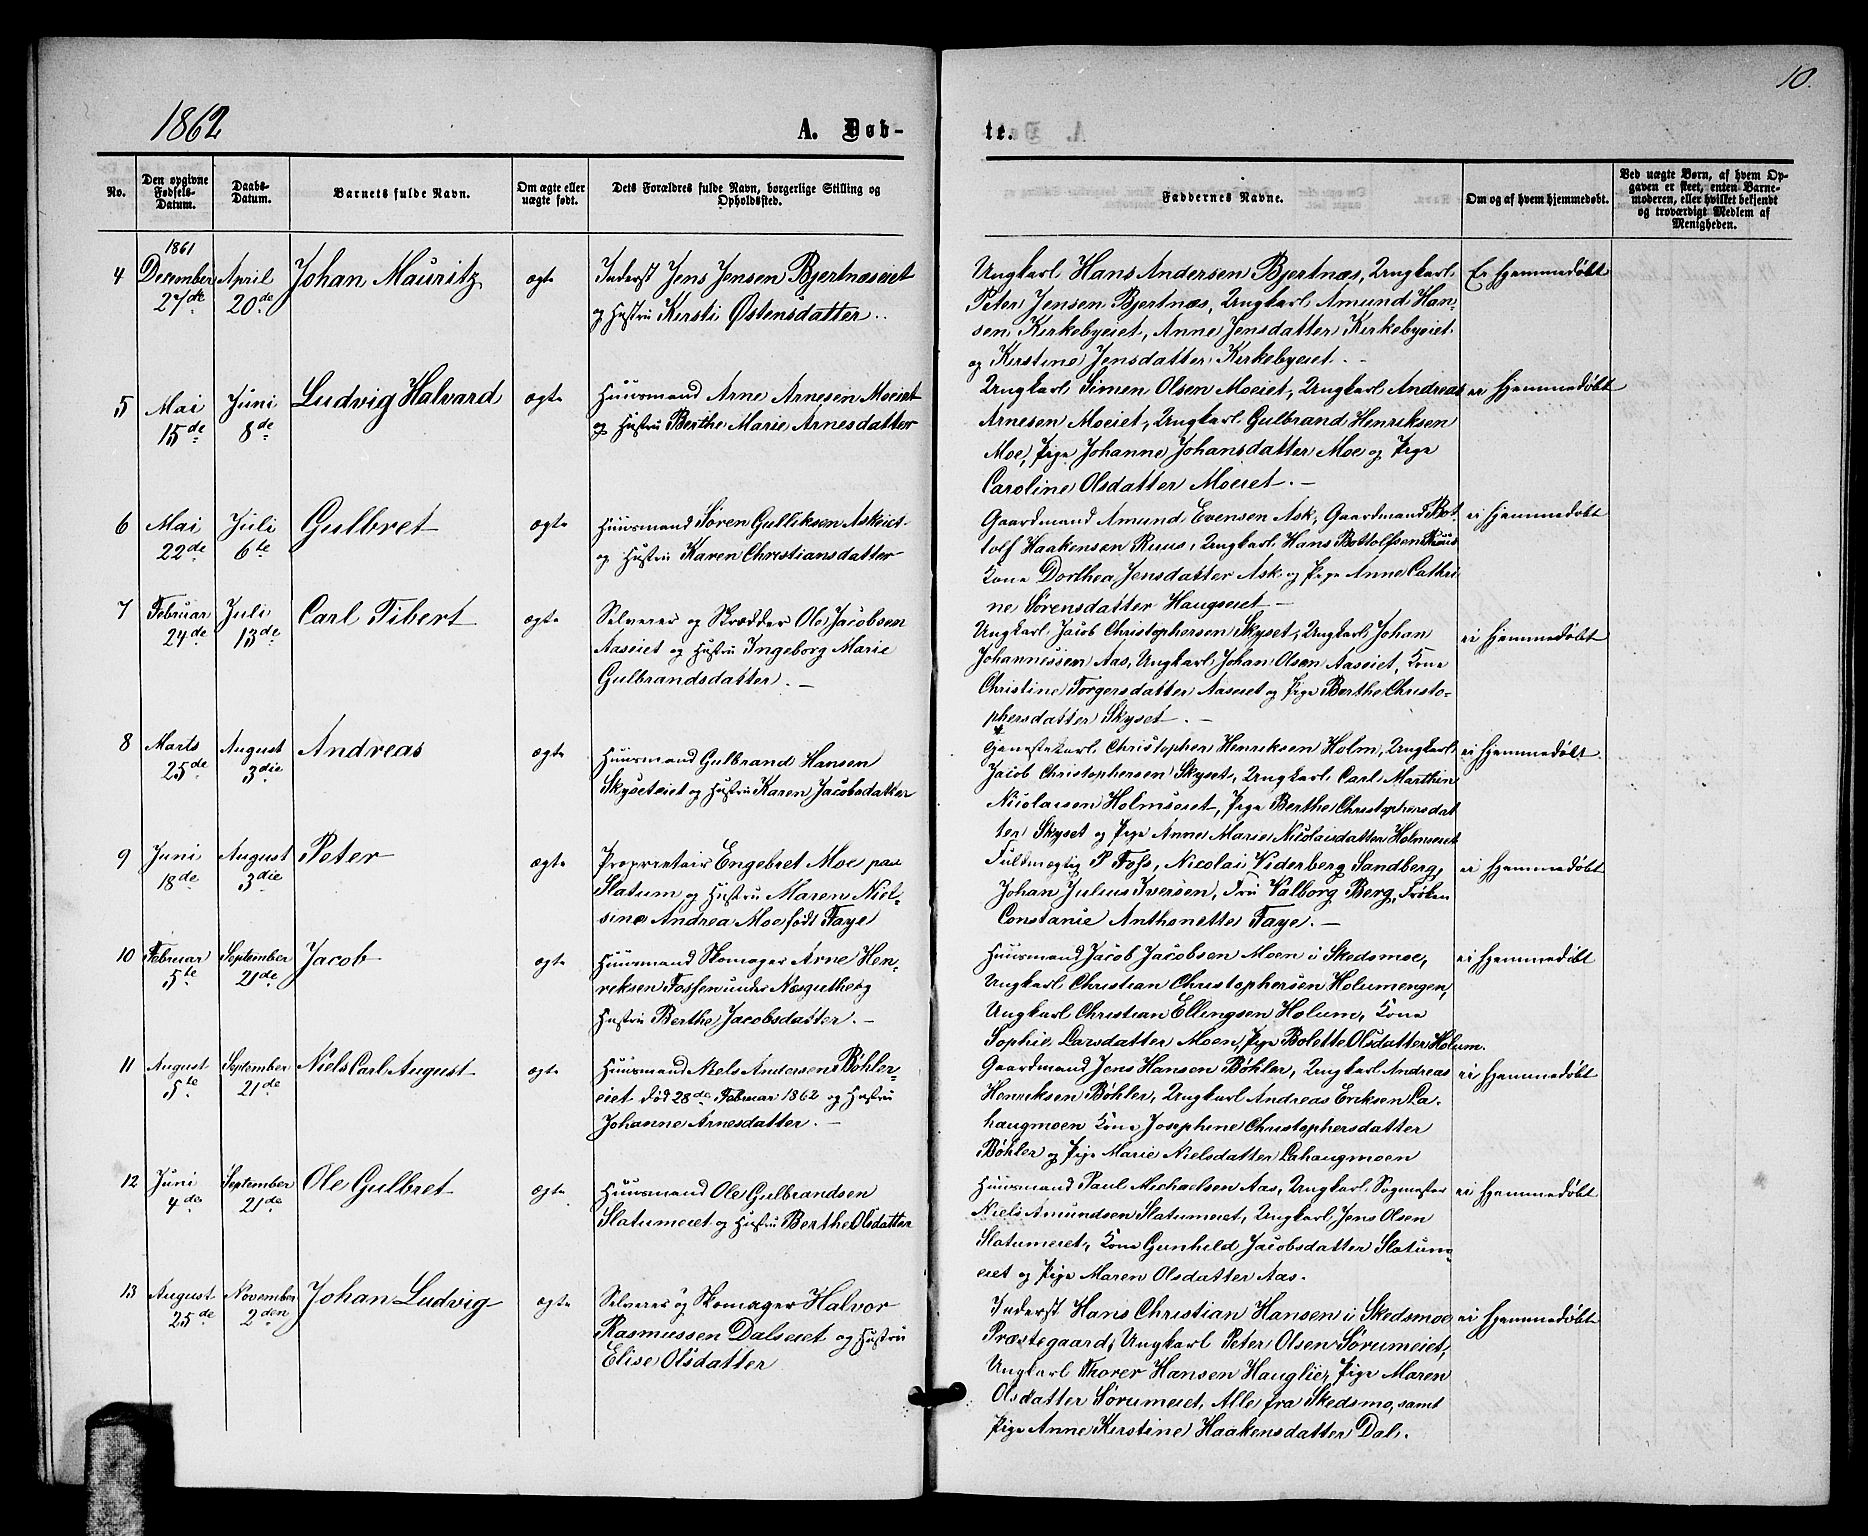 10.
1862
A. Døb-
te.
No.
Den opgivne Fødsels-Datum.
Daabs-Datum.
Barnets fulde Navn.
Om ægte eller uægte født.
Dets Forældres fulde Navn, borgerlige Stilling og Opholdssted.
Faddernes Navne.
Om og af hvem hjemmedøbt.
Ved uægte Børn, af hvem Opgaven er skeet, enten Barnemoderen, eller hvilket bekjendt og troværdigt Medlem af Menigheden.
4
1861
December
27de
April
20de
Johan Mauritz
ægte
Inderst Jens Jensen Bjertnæseiet
og Hustru Kirsti Østensdatter.
Ungkarl Hans Andersen Bjertnæs, Ungkarl
Peter Jensen Bjertnæs, Ungkarl Amund Han-
sen Kirkebyeiet, Anne Jensdatter Kirkebyeiet
og Kirstine Jensdatter Kirkebyeiet.-
Er hjemmedøbt
5
Mai
15de
Juni
8de
Ludvig Halvard
ægte
Huusmand Arne Arnesen Moeiet
og Hustru Berthe Marie Arnesdatter
Ungkarl Simen Olsen Moeiet, Ungkarl Andreas
Arnesen Moeiet, Ungkarl Gulbrand Henriksen
Moe, Pige Johanne Johansdatter Moe og Pige
Caroline Olsdatter Moeiet.-
ei hjemmedøbt
6
Mai
22de
Juli
6te
Gulbret
ægte
Huusmand Søren Gulliksen Askeiet
og Hustru Karen Christiansdatter
Gaardmand Amund Evensen Ask, Gaardmand Bot-
tolf Haakensen Ruus, Ungkarl Hans Bottolfsen Ruus
Kone Dorthea Jensdatter Ask og Pige Anne Cathri
ne Sørensdatter Haugseiet-
ei hjemmedøbt
7
Februar
24de
Juli
13de
Carl Tibert
ægte
Selveier og Skrædder Ole Jacobsen
Aaseiet og Hustru Ingeborg Marie
Gulbrandsdatter.-
Ungkarl Jacob Christophersen Skyset, Ungkarl Johan
Johannessen Aas, Ungkarl Johan Olsen Aaseiet, Kone
Christine Torgersdatter Aaseiet og Pige Berthe Christo-
phersdatter Skyset.-
ei hjemmedøbt
8
Marts
25de
August
3die
Andreas
ægte
Huusmand Gulbrand Hansen
Skyseteiet og Hustru Karen Jacobsdatter
Tjenestekarl Christopher Henriksen Holm, Ungkarl
Jacob Christophersen Skyset, Ungkarl Carl Marthin
Nicolaisen Holmseiet, Pige Berthe Christophersdat
ter Skyset og Pige Anne Marie Nicolaisdatter Holmseiet
ei hjemmedøbt.
9
Juni
18de
August
3die
Peter
ægte
Proprietair Engebret Moe paa
Slatum og Hustru Maren Niel-
sine Andrea Moe født Faye
Fuldmægtig P Foss, Nicolai Viderberg Sandberg,
Johan Julius Iversen, Fru Valborg Berg, Frøken
Constanie Anthonette Faye.-
ei hjemmedøbt
10
Februar
5te
September
21de
Jacob
ægte
Huusmand Skomager Arne Hen-
riksen Fossen under Næsguth og
Hustru Berthe Jacobsdatter.-
Huusmand Jacob Jacobsen Moen i Skedsmoe,
Ungkarl Christian Christophersen Holumengen,
Ungkarl Christian Ellingsen Holum, Kone
Sophie Larsdatter Moen, Pige Bolette Olsdatter Holum.
ei hjemmedøbt
11
August
5te
September
21de
Niels Carl August
ægte
Huusmand Niels Andersen Bøhler-
eiet død 28de Februar 1862 og Hustru
Johanne Arnesdatter.-
Gaardmand Jens Hansen Bøhler, Ungkarl Andreas
Henriksen Bøhler, Ungkarl Andreas Eriksen La-
haugmoen Kone Josephine Christophersdatter
Bøhler og Pige Marie Nielsdatter Lahaugmoen
ei hjemmedøbt
12
Juni
4de
September
21de
Ole Gulbret
ægte
Huusmand Ole Gulbrandsen
Slatumeiet og Hustru Berthe Olsdatter
Huusmand Paul Michaelsen Aas, Ungkarl Sogmester
Niels Amundsen Slatumeiet, Ungkarl Jens Olsen
Slatumeiet, Kone Gunhild Jacobsdatter Slatum-
eiet og Pige Maren Olsdatter Aas.
ei hjemmedøbt
13
August
25de
November
2den
Johan Ludvig
ægte
Selveier og Skomager Halvor
Rasmussen Dalseiet og Hustru
Elise Olsdatter
Inderst Hans Christian Hansen i Skedsmoe
Præstegaard, Ungkarl Peter Olsen Sørumeiet,
Ungkarl Thorer Hansen Hauglie, Pige Maren
Olsdatter Sørumeiet, Alle fra Skedsmo, samt
Pige Anne Kirstine Haakensdatter Dal.
ei hjemmedøbt